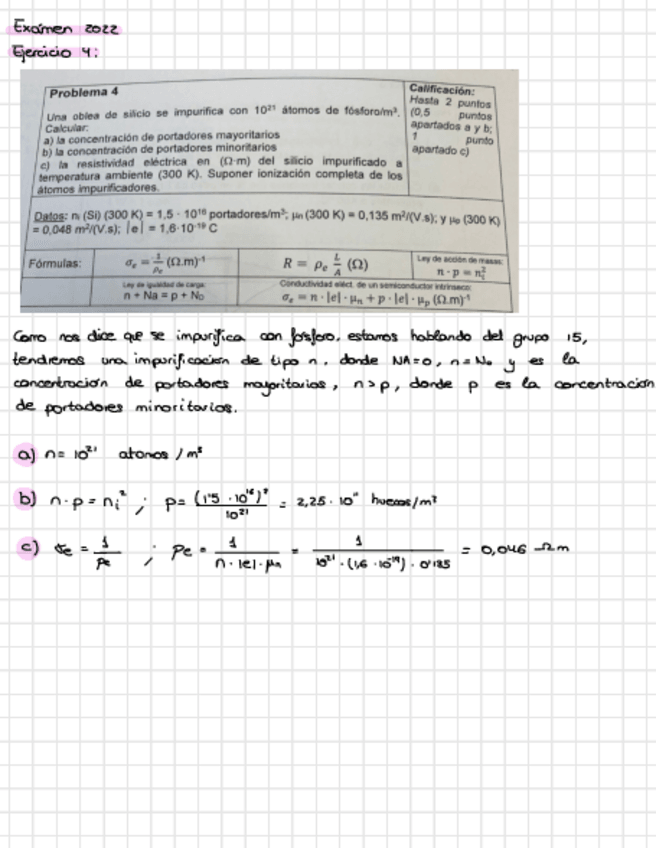 Exámen 2022
Ejercicio 4:
Problema 4
Una oblea de silicio se impurifica con 10²¹ átomos de fósforo/m³.
Calcular:
a) la concentración de portadores mayoritarios
b) la concentración de portadores minoritarios
c) la resistividad eléctrica en (Ω·m) del silicio impurificado a
temperatura ambiente (300 K). Suponer ionización completa de los
átomos impurificadores.
Calificación:
Hasta 2 puntos
(0,5 puntos
apartados a y b;
1 punto
apartado c)
Datos: nᵢ (Si) (300 K) = 1,5 · 10¹⁶ portadores/m³; μn (300 K) = 0,135 m²/(V.s); y μp (300 K)
= 0,048 m²/(V.s); |e| = 1,6·10⁻¹⁹ C
Fórmulas:
σₑ = 1/ρₑ (Ω.m)⁻¹
R = ρₑ L/A (Ω)
Ley de acción de masas:
n · p = nᵢ²
Ley de igualdad de carga:
n + Na = p + N_D
Conductividad eléct. de un semiconductor intrínseco:
σₑ = n · |e| · μₙ + p · |e| · μₚ (Ω.m)⁻¹
Como nos dice que se impurifica con fósforo, estamos hablando del grupo 15,
tendremos una impurificación de tipo n, donde NA=0, n=N_D y es la
concentración de portadores mayoritarios, n>p, donde p es la concentración
de portadores minoritarios.
a) n= 10²¹ átomos /m³
b) n·p = nᵢ² ; p= (1'5 ·10¹⁶)²/10²¹ = 2,25· 10¹¹ huecos/m³
c) σe = 1/ρe ; ρe = 1/(n·|e|·μn) = 1/(10²¹ ·(1,6 ·10⁻¹⁹) · 0'135) = 0,046 Ωm